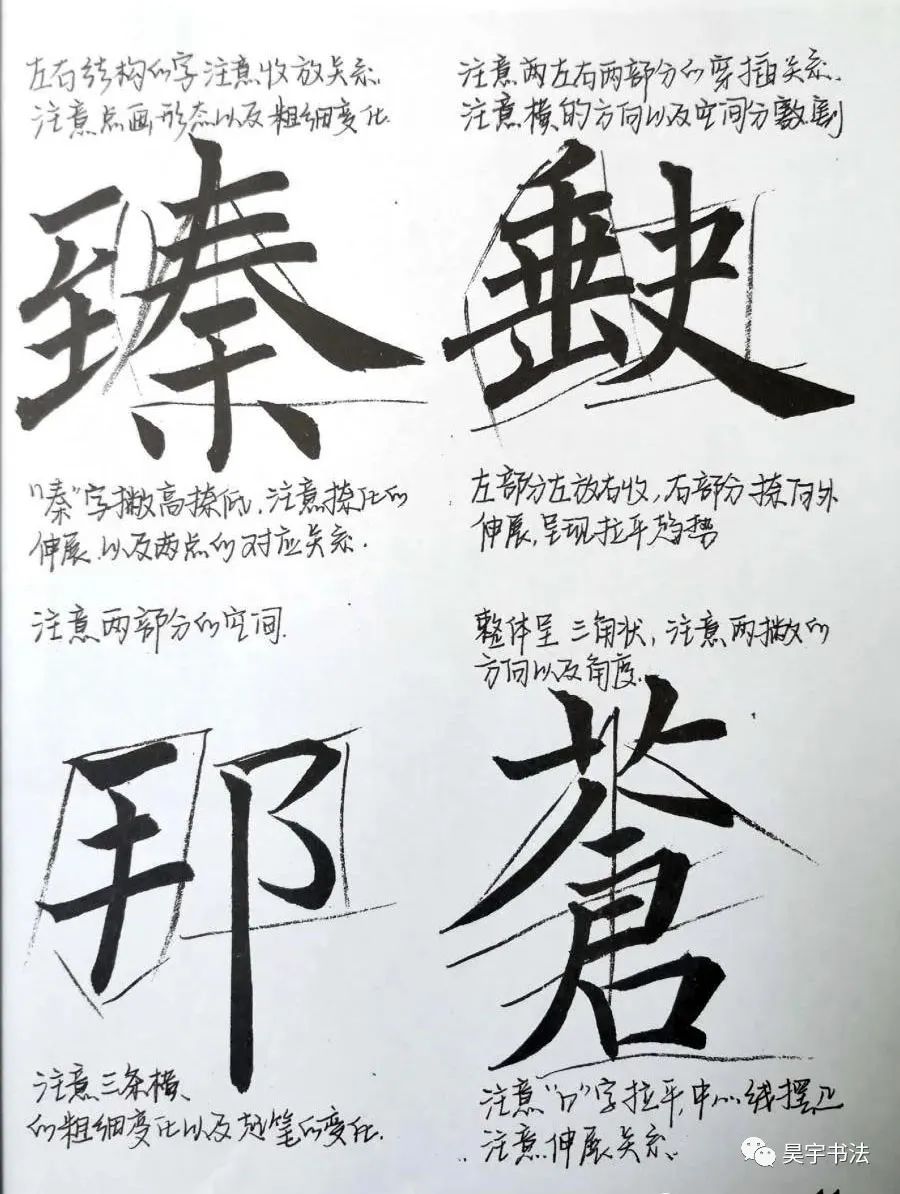 左右结构的字注意收放关系
注意点画形态以及粗细变化
臻
"秦"字撇高捺低,注意捺化的
伸展.以及两点的对应关系.
注意两左右两部分的穿插关系.
注意横的方向以及空间分割
左部分左放右收,右部分捺向外
伸展,呈现拉平趋势
注意两部分的空间.
邦
注意三条横
的粗细变化以及起笔的变化.
整体呈三角状,注意两撇的
方向以及角度.
蒼
注意"口"字拉平,中心线摆正
注意伸展关系.
昊宇书法